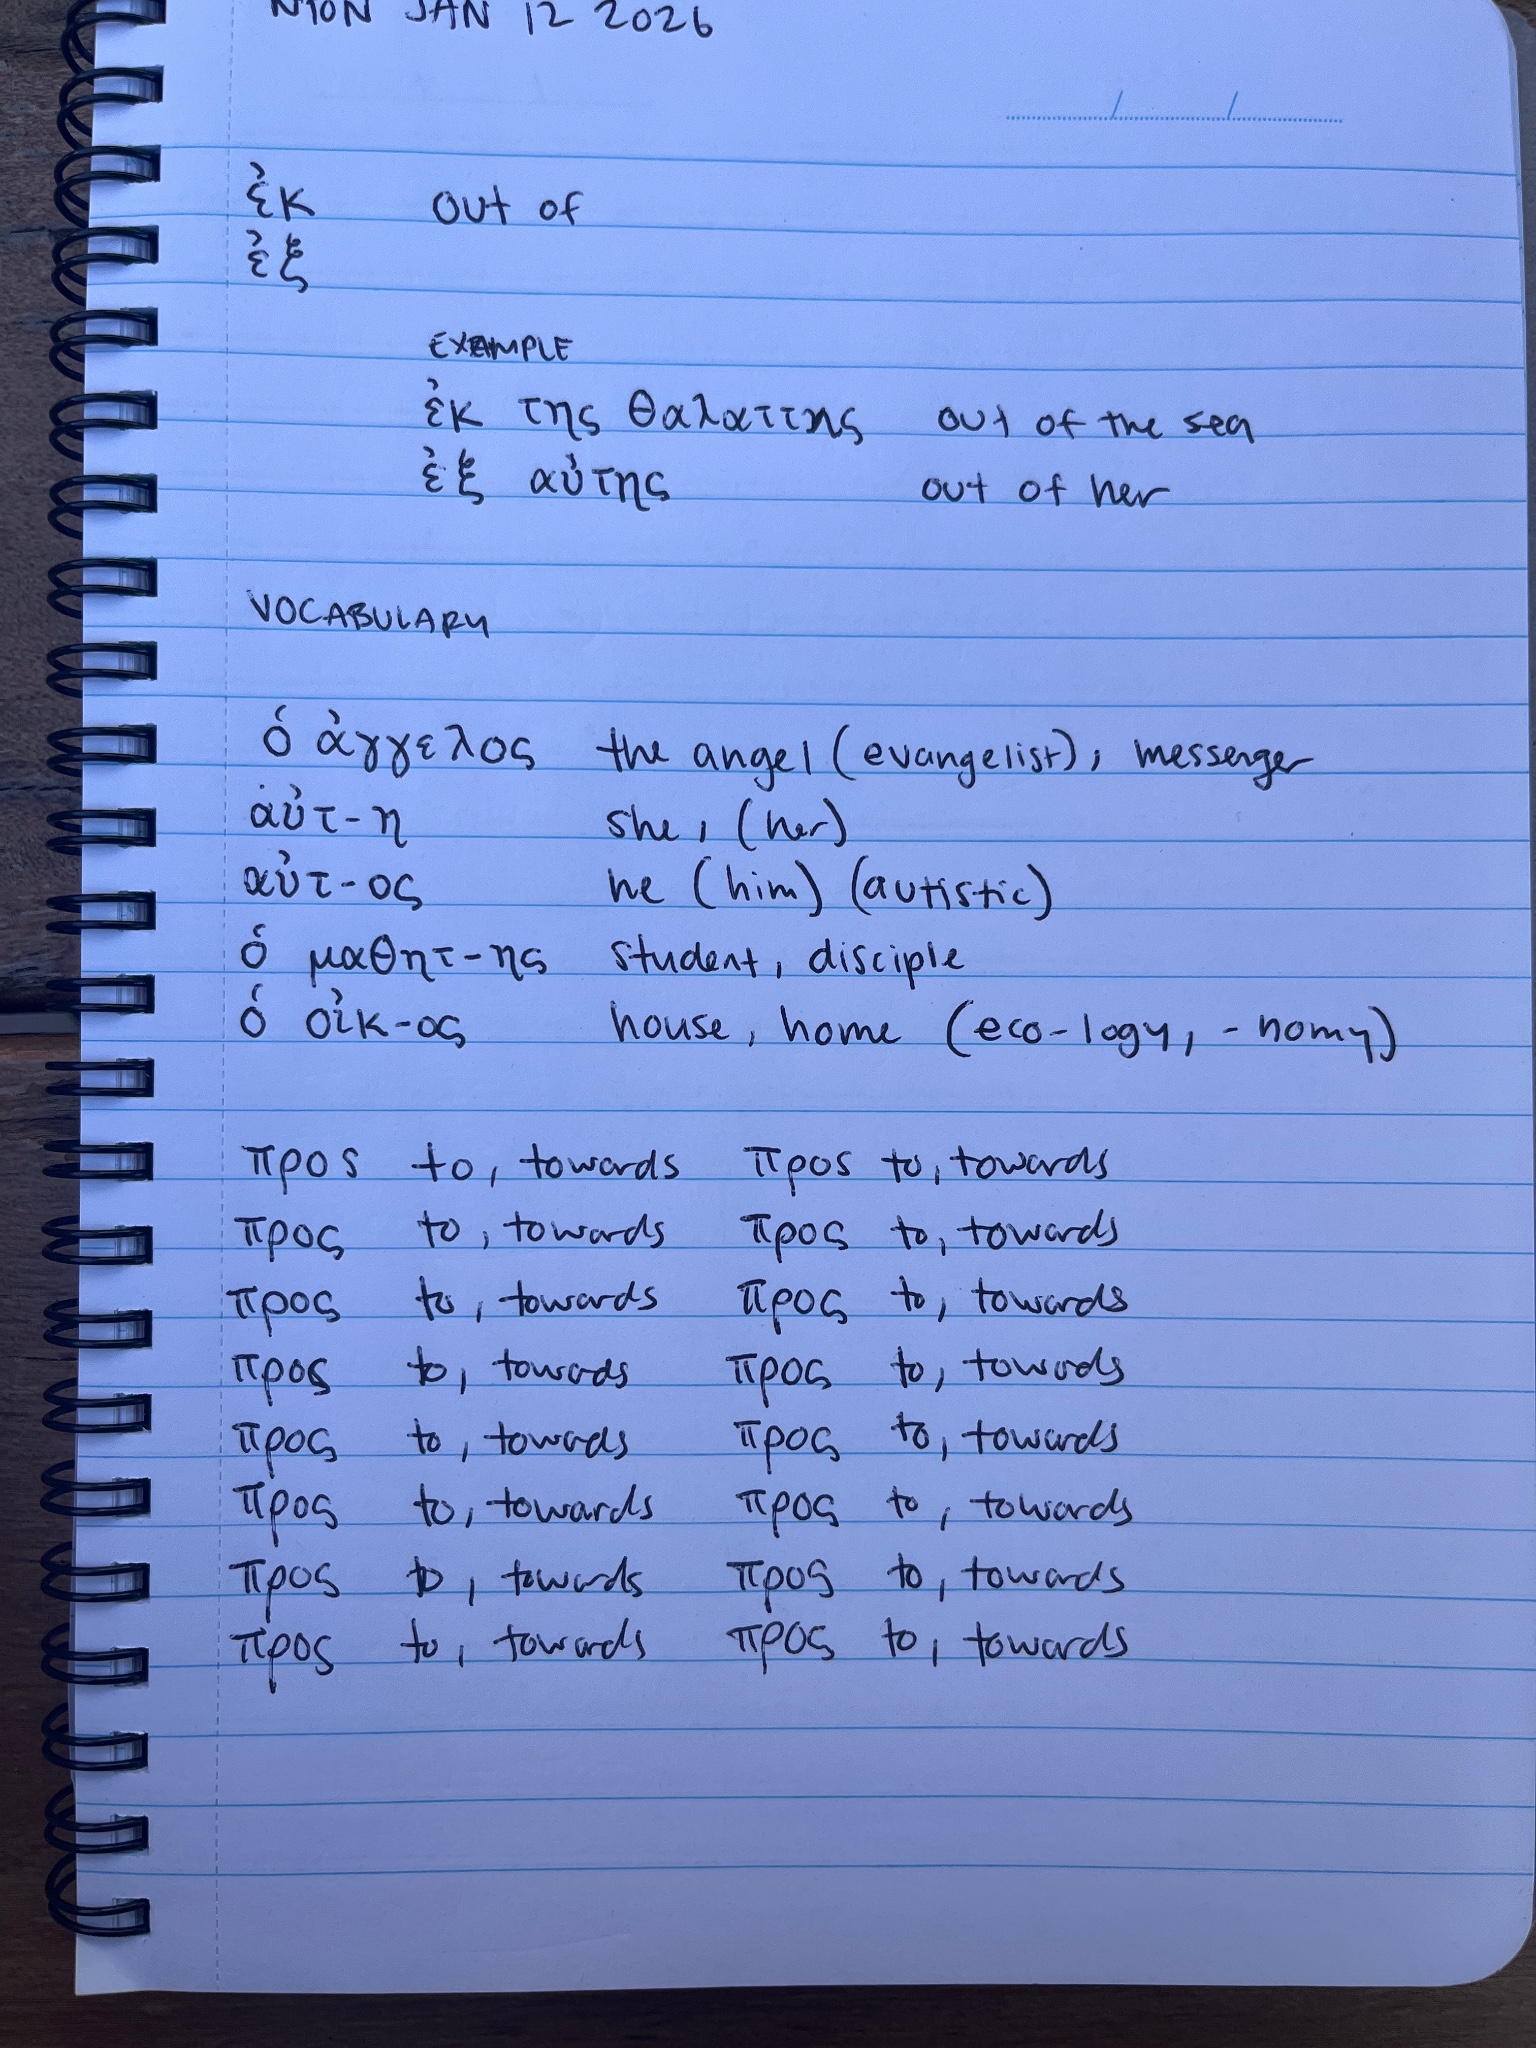 MON JAN 12 2026
ἐκ out of
ἐξ
EXAMPLE
ἐκ της θαλαττης out of the sea
ἐξ αὐτης out of her
VOCABULARY
ὁ ἀγγελος the angel (evangelist), messenger
αὐτ-η she, (her)
αὐτ-ος he (him) (autistic)
ὁ μαθητ-ης student, disciple
ὁ οἰκ-ος house, home (eco-logy, -nomy)
προς to, towards προς to, towards
προς to, towards προς to, towards
προς to, towards προς to, towards
προς to, towards προς to, towards
προς to, towards προς to, towards
προς to, towards προς to, towards
προς to, towards προς to, towards
προς to, towards προς to, towards